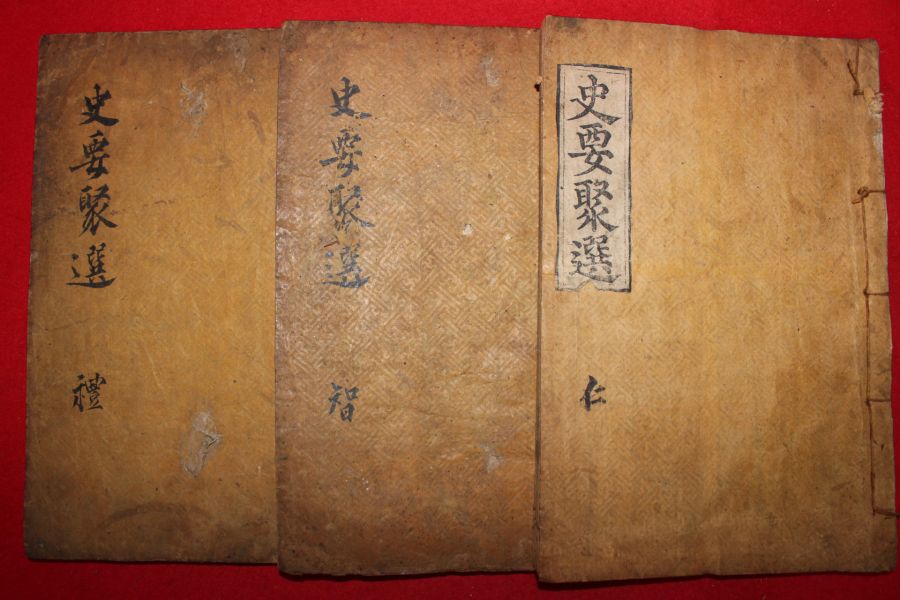 史要聚選
仁
史要聚選
智
史要聚選
禮